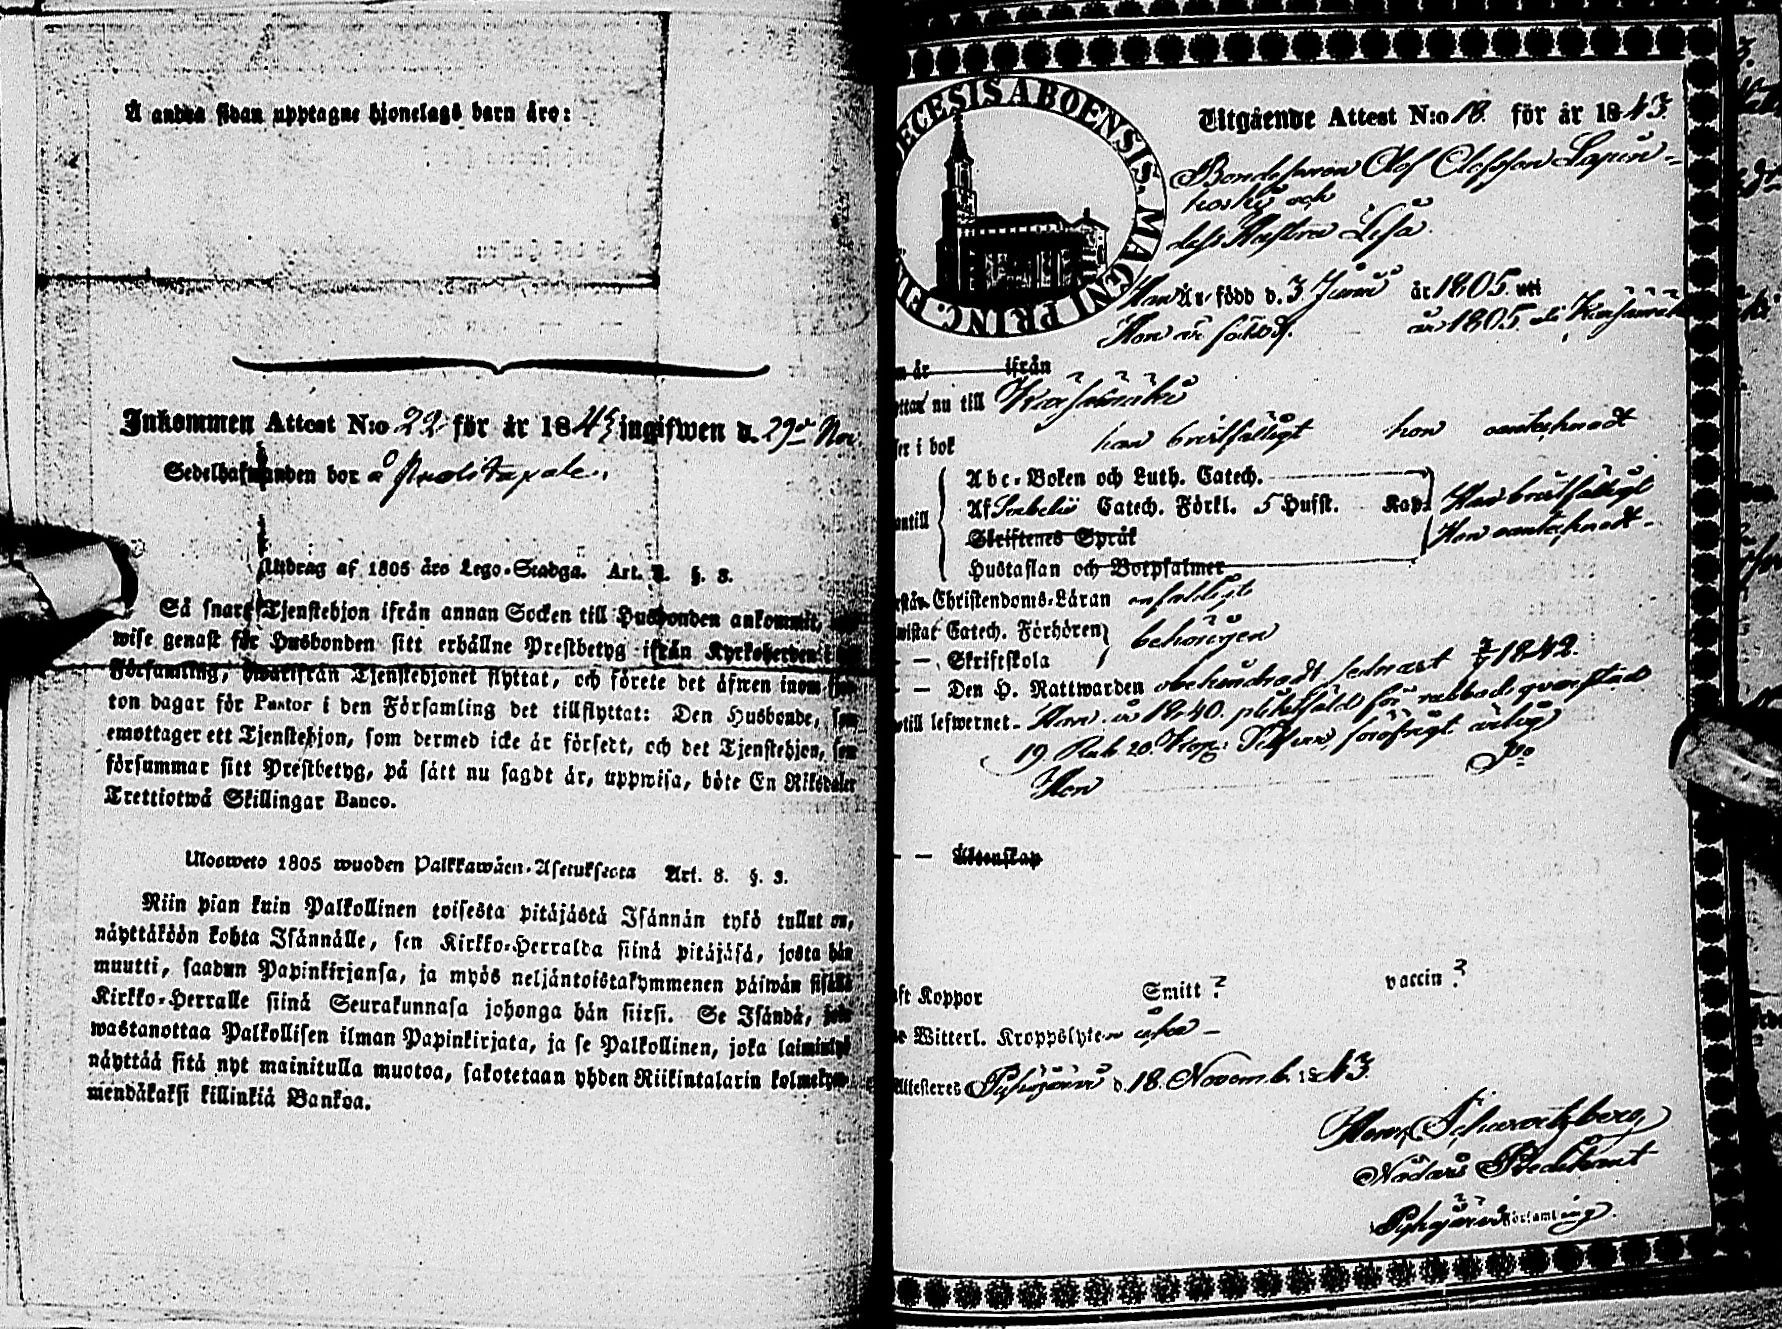 Å andra sidan upptagne hjonelags barn äro:
Inkommen Attest N:o 22 för år 1843 ingifwen d. 29de Nov.
Sedelhafwanden bor å
Utdrag af 1805 års Lego-Stadga. Art. 8. §. 3.
Så snart Tjenstehjon ifrån annan Socken till Husbonden ankommit,
wise genast för Husbonden sitt erhållne Prestbetyg ifrån Kyrkoherden i
Församling, hwarifrån Tjenstehjonet flyttat, och förete det äfwen inom fjor-
ton dagar för Pastor i den Församling det tillflyttat: Den Husbonde, som
emottager ett Tjenstehjon, som dermed icke är försedt, och det Tjenstehjon, som
försummar sitt Prestbetyg, på sätt nu sagdt är, uppwisa, böte En Riksdaler
Trettiotwå Skillingar Banco.
Ulosweto 1805 wuoden Palkkawäen-Asetuksesta Art. 8. §. 3.
Niin pian kuin Palkollinen toisesta pitäjästä Isännän tykö tullut on,
näyttäköön kohta Isännälle, sen Kirkko-Herralda siinä pitäjäsä, josta hän
muutti, saadun Papinkirjansa, ja myös neljäntoistakymmenen päiwän sisällä
Kirkko-Herralle siinä Seurakunnasa johonga hän siirsi. Se Isändä, joka
wastanottaa Palkollisen ilman Papinkirjata, ja se Palkollinen, joka laiminlyö
näyttää sitä nyt mainitulla muotoa, sakotetaan yhden Riikintalarin kolmekym-
mendäkaksi killinkiä Bankoa.
ECESIS ABOENSIS. MAGNI PRINC. FI
Utgående Attest N:o 18. för år 1843.
Bondesonen Olof Olofsson Lapin-
koski och
dess Hustru Lisa
Han Är född d. 3 Junii år 1805. uti
Hon är född. år 1805. i
n är ifrån
yttar nu till
er i bok han bristfälligt hon
Abc-Boken och Luth. Catech.
antill Af Svebelii Catech. Förkl. 5 Hufst. Kap. Han bristfälligt
Skriftenes Språk Hon
Hustaflan och Botpsalmer
rstår Christendoms-Läran enfaldigt
wistat Catech. Förhören behörigen
— — Skriftskola
— — Den H. Nattwarden obehindradt sednast 1842.
till lefwernet Han är 1840 pliktfäld för
19 Rub 20 Kop: Silfver, för öfrigt ärlig
Hon
— — Äktenskap
ft Koppor Smitt ? vaccin ?
e Witterl. Kroppslyte
Attesteres Pyhäjärvi d. 18. Novemb. 1843.
Schwartzberg
Nådårs Predikant
Pyhäjärvi Församling.